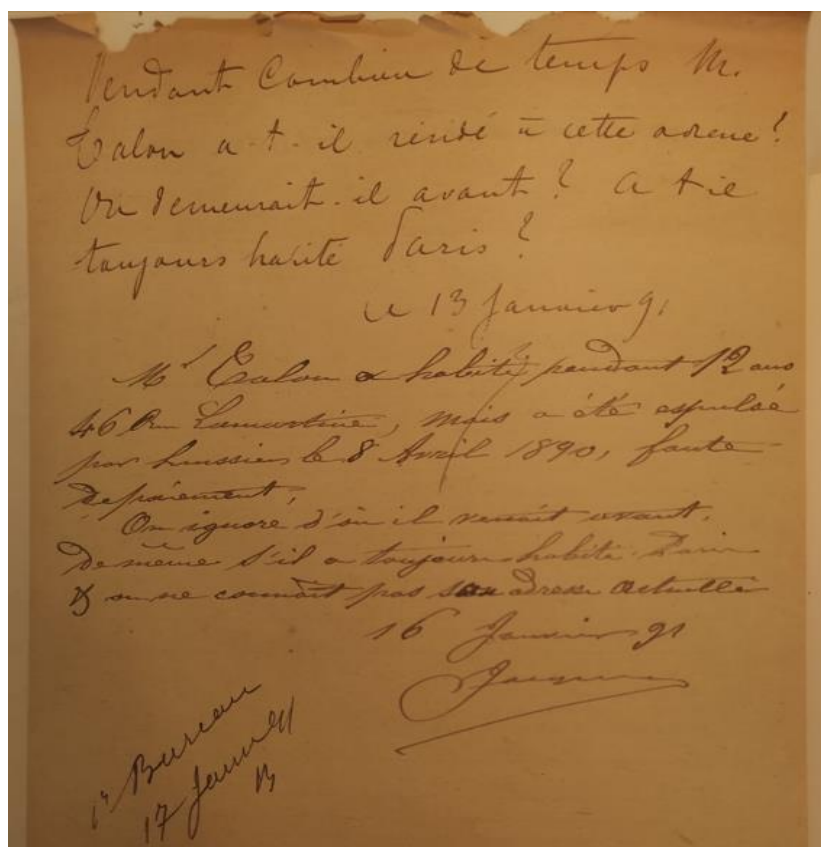 Pendant Combien de temps M.
Talon a-t-il résidé à cette adresse?
Ou demeurait-il avant? A t il
toujours habité Paris?
Le 13 Janvier 91
Mr Talon a habité pendant 12 ans
46 Rue Lamartine, mais a été expulsé
par huissier le 8 Avril 1890, faute
de paiement,
On ignore d'où il venait avant,
De même s'il a toujours habité Paris
& on ne connaît pas son adresse actuelle
16 Janvier 91
1r Bureau
17 Janv 91